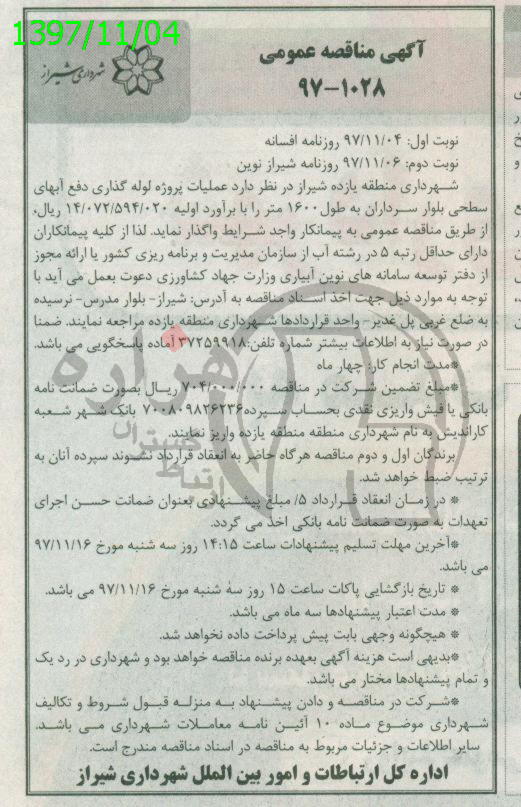 1397/11/04
شهرداری شیراز
آگهی مناقصه عمومی
۹۷-۱۰۲۸
نوبت اول: ۹۷/۱۱/۰۴ روزنامه افسانه
نوبت دوم: ۹۷/۱۱/۰۶ روزنامه شیراز نوین
شهرداری منطقه یازده شیراز در نظر دارد عملیات پروژه لوله گذاری دفع آبهای
سطحی بلوار سرداران به طول ۱۶۰۰ متر را با برآورد اولیه ۱۴/۰۷۲/۵۹۴/۰۲۰ ریال،
از طریق مناقصه عمومی به پیمانکار واجد شرایط واگذار نماید. لذا از کلیه پیمانکاران
دارای حداقل رتبه ۵ در رشته آب از سازمان مدیریت و برنامه ریزی کشور یا ارائه مجوز
از دفتر توسعه سامانه های نوین آبیاری وزارت جهاد کشاورزی دعوت بعمل می آید با
توجه به موارد ذیل جهت اخذ اسناد مناقصه به آدرس: شیراز- بلوار مدرس- نرسیده
به ضلع غربی پل غدیر- واحد قراردادها شهرداری منطقه یازده مراجعه نمایند. ضمنا
در صورت نیاز به اطلاعات بیشتر شماره تلفن: ۳۷۲۵۹۹۱۸ آماده پاسخگویی می باشد.
*مدت انجام کار: چهار ماه
*مبلغ تضمین شرکت در مناقصه ۷۰۴/۰۰۰/۰۰۰ ریال بصورت ضمانت نامه
بانکی یا فیش واریزی نقدی بحساب سپرده ۷۰۰۸۰۹۸۲۶۲۳۶ بانک شهر شعبه
کاراندیش به نام شهرداری منطقه منطقه یازده واریز نمایند.
برندگان اول و دوم مناقصه هرگاه حاضر به انعقاد قرارداد نشوند سپرده آنان به
ترتیب ضبط خواهد شد.
* در زمان انعقاد قرارداد ۵٪ مبلغ پیشنهادی بعنوان ضمانت حسن اجرای
تعهدات به صورت ضمانت نامه بانکی اخذ می گردد.
*آخرین مهلت تسلیم پیشنهادات ساعت ۱۴:۱۵ روز سه شنبه مورخ ۹۷/۱۱/۱۶
می باشد.
* تاریخ بازگشایی پاکات ساعت ۱۵ روز سه شنبه مورخ ۹۷/۱۱/۱۶ می باشد.
* مدت اعتبار پیشنهادها سه ماه می باشد.
* هیچگونه وجهی بابت پیش پرداخت داده نخواهد شد.
*بدیهی است هزینه آگهی بعهده برنده مناقصه خواهد بود و شهرداری در رد یک
و تمام پیشنهادها مختار می باشد.
*شرکت در مناقصه و دادن پیشنهاد به منزله قبول شروط و تکالیف
شهرداری موضوع ماده ۱۰ آئین نامه معاملات شهرداری می باشد.
سایر اطلاعات و جزئیات مربوط به مناقصه در اسناد مناقصه مندرج است.
اداره کل ارتباطات و امور بین الملل شهرداری شیراز